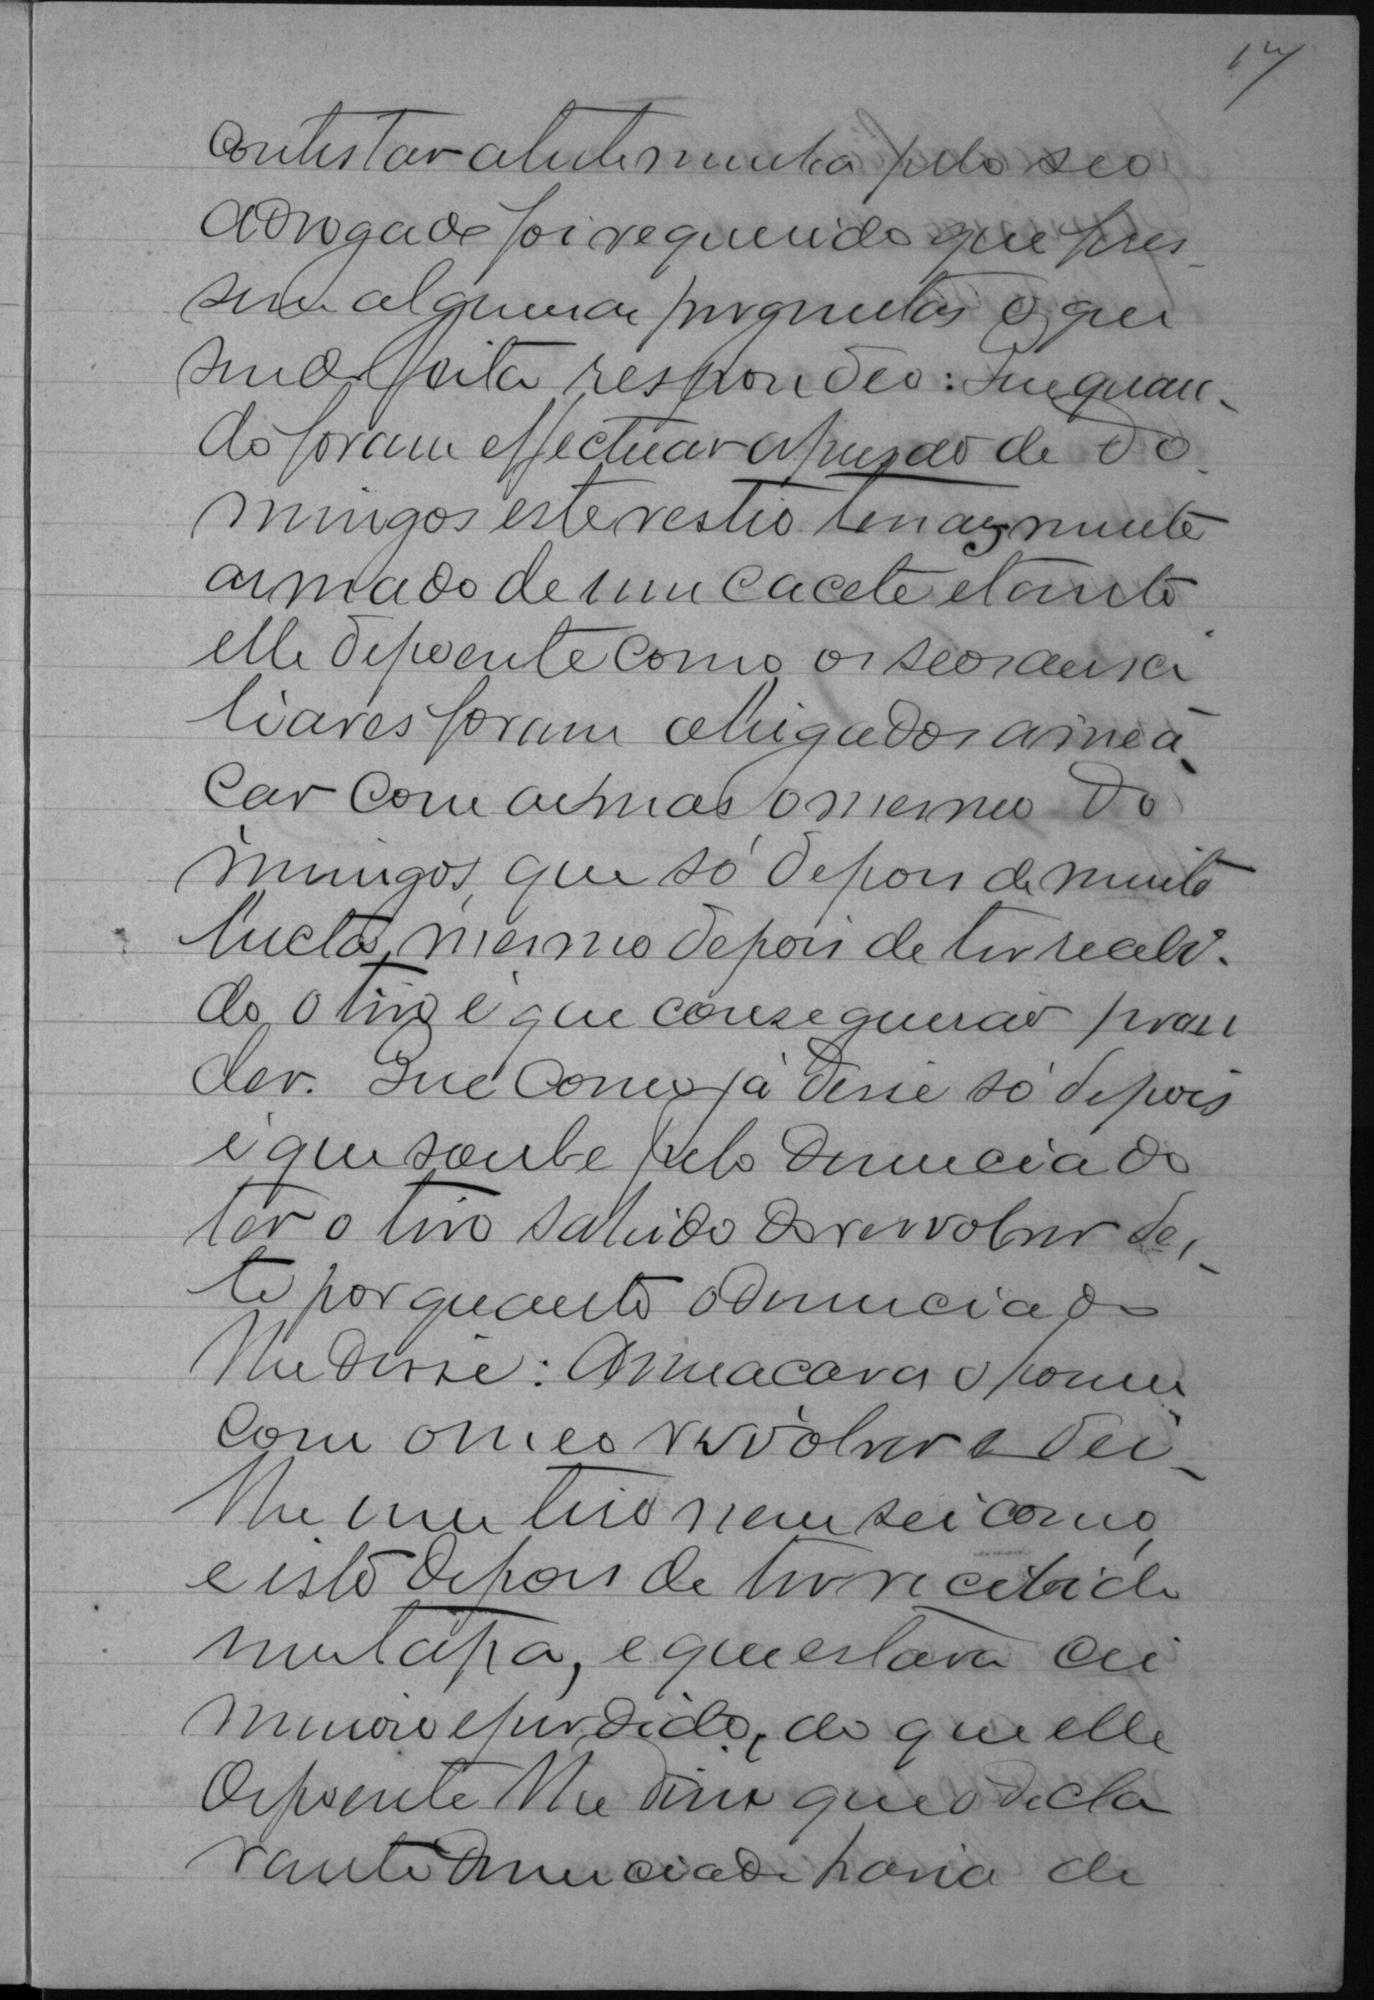 17
contestar a testemunha pelo seo
advogado foi requerido que fires
sem algumas perguntas o que
sendo feita respondeo: Que quan-
do foram effectuar a prisão de Do-
mingos este restio tenazmente
armado de um cacete e tanto
elle depoente como os seos auxi
liares foram obrigados a mea-
çar com armas o mesmo Do
mingos, que só depois de muita
lucta, mesmo depois de ter recebi-
do o tiro é que conseguirão pren
der. Que como já disse só depois
é que soube pelo denunciado
ter o tiro sahido do rewolver des-
te por quanto o denunciado
lhe disse: Ameacava o homem
com o meo revolver e dei-
lhe um tiro nem sei como,
e isto depois de ter recebido
um tapa, e que estava cri
minoso e perdido, ao que elle
depoente lhe disse que o decla
rante denunciado havia de